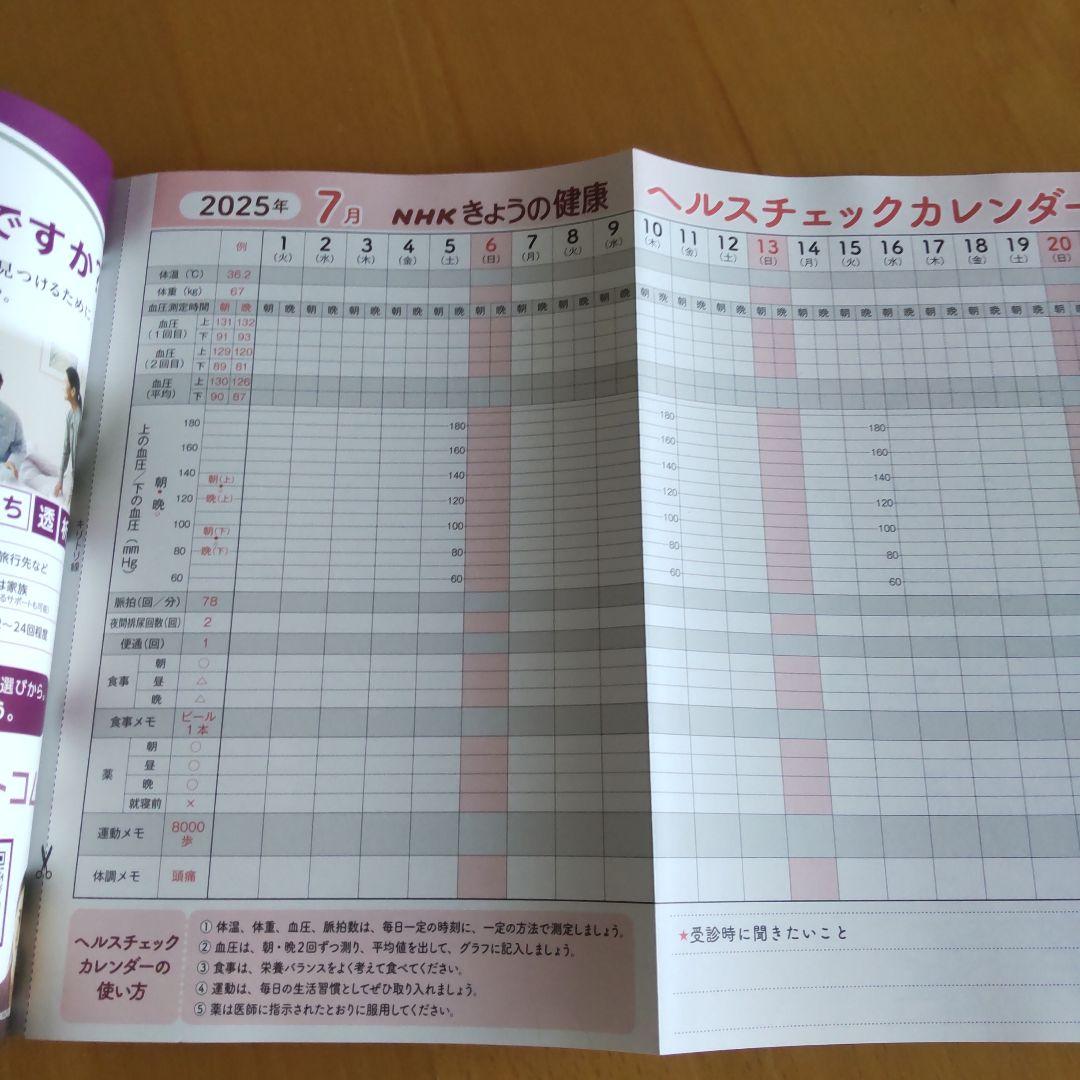 2025年 7月 NHK きょうの健康 ヘルスチェックカレンダー
例 1 2 3 4 5 6 7 8 9 10 11 12 13 14 15 16 17 18 19 20
(火) (水) (木) (金) (土) (日) (月) (火) (水) (木) (金) (土) (日) (月) (火) (水) (木) (金) (土) (日)
体温(℃) 36.2
体重(kg) 67
血圧測定時間 朝 晩 朝 晩 朝 晩 朝 晩 朝 晩 朝 晩 朝 晩 朝 晩 朝 晩 朝 晩 朝 晩 朝 晩 朝 晩 朝 晩 朝 晩 朝 晩 朝 晩 朝 晩 朝 晩 朝 晩 朝
血圧(1回目) 上 131 132
下 91 93
血圧(2回目) 上 129 120
下 89 81
血圧(平均) 上 130 126
下 90 87
上の血圧/下の血圧(mmHg)
朝・晩
180 180 180 180
160 160 160 160
140 140 140 140
120 120 120 120
100 100 100 100
80 80 80 80
60 60 60 60
朝(上)
晩(上)
朝(下)
晩(下)
脈拍(回/分) 78
夜間排尿回数(回) 2
便通(回) 1
食事 朝 ○
昼 △
晩 △
食事メモ ビール1本
薬 朝 ○
昼 ○
晩 ○
就寝前 ×
運動メモ 8000歩
体調メモ 頭痛
ヘルスチェック
カレンダーの
使い方
① 体温、体重、血圧、脈拍数は、毎日一定の時刻に、一定の方法で測定しましょう。
② 血圧は、朝・晩2回ずつ測り、平均値を出して、グラフに記入しましょう。
③ 食事は、栄養バランスをよく考えて食べてください。
④ 運動は、毎日の生活習慣としてぜひ取り入れましょう。
⑤ 薬は医師に指示されたとおりに服用してください。
★受診時に聞きたいこと
キリトリ線
ですか
見つけるために
ち 透
旅行先など
は家族
るサポートも可能)
～24回程度
選びから、
う。